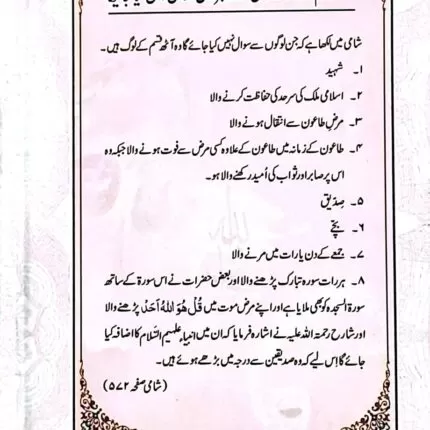 شامی میں لکھا ہے کہ جن لوگوں سے سوال نہیں کیا جائے گا وہ آٹھ قسم کے لوگ ہیں۔
۱۔ شہید
۲۔ اسلامی ملک کی سرحد کی حفاظت کرنے والا
۳۔ مرضِ طاعون سے انتقال ہونے والا
۴۔ طاعون کے زمانہ میں طاعون کے علاوہ کسی مرض سے فوت ہونے والا جبکہ وہ
اس پر صابر اور ثواب کی اُمید رکھنے والا ہو۔
۵۔ صدّیق
۶۔ بچّے
۷۔ جمعے کے دن یا رات میں مرنے والا
۸۔ ہر رات سورہ تبارک پڑھنے والا اور بعض حضرات نے اس سورۃ کے ساتھ
سورۃ السجدہ کو بھی ملایا ہے اور اپنے مرض موت میں قُلْ هُوَ اللهُ اَحَدٌ پڑھنے والا
اور شارح رحمتہ اللہ علیہ نے اشارہ فرمایا کہ ان میں انبیاء علیہم السّلام کا اضافہ کیا
جائے گا اِس لیے کہ وہ صدیقین سے درجہ میں بڑھے ہوئے ہیں۔
(شامی صفحہ ۵۷۲)